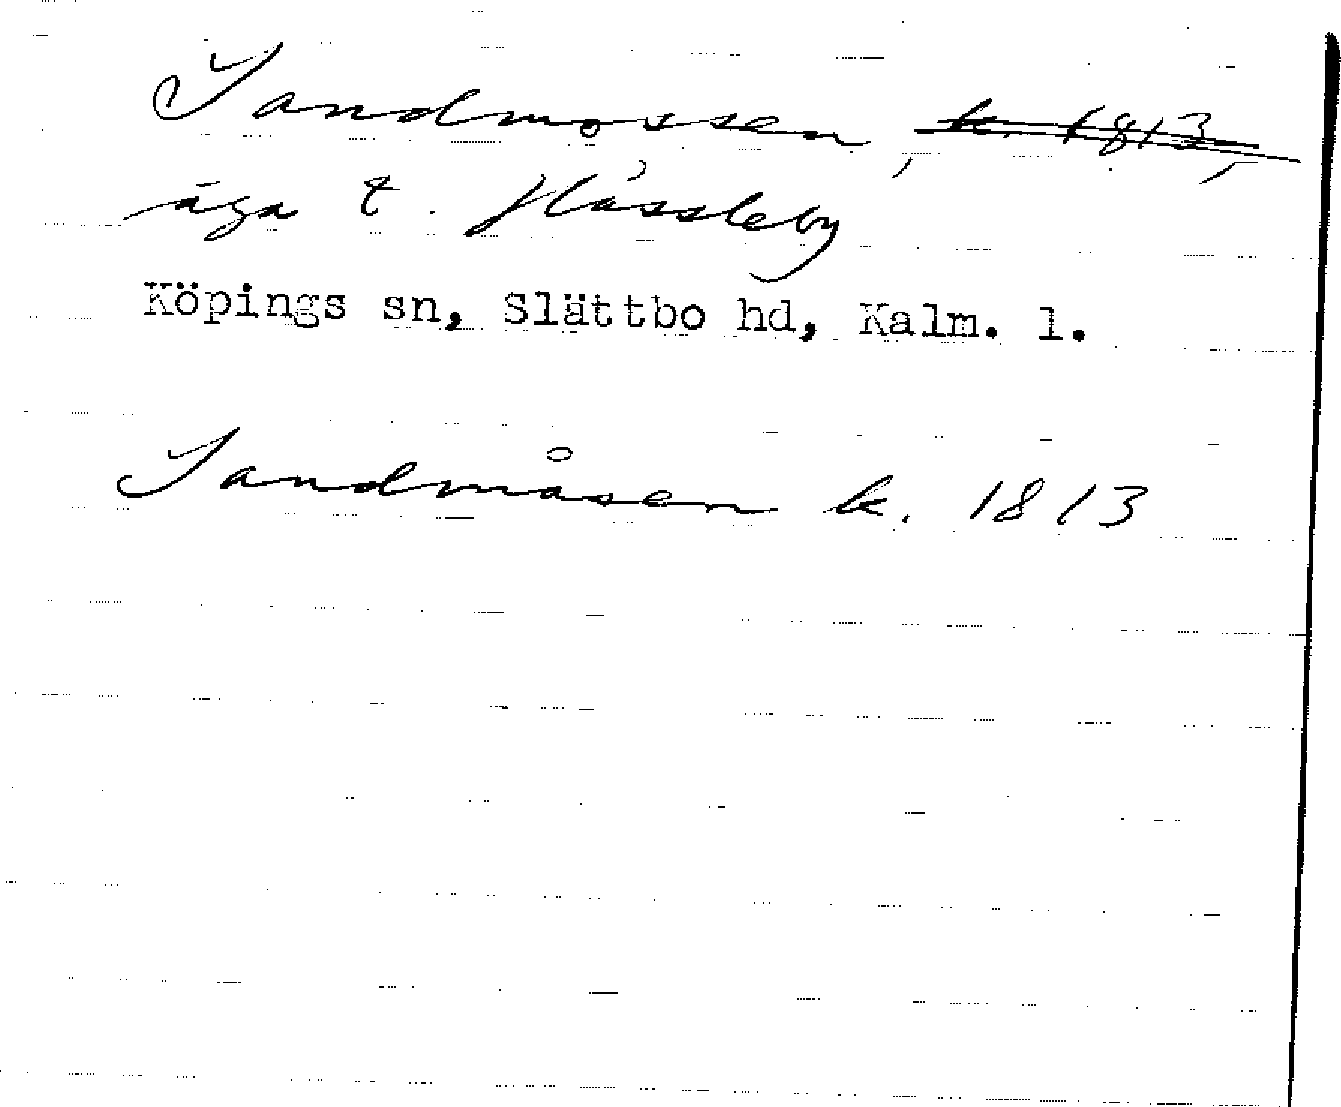 Sandmossen, ~~k. 1813,~~
äga t. Hässleby
Köpings sn, Slättbo hd, Kalm. l.
Sandmåsen k. 1813